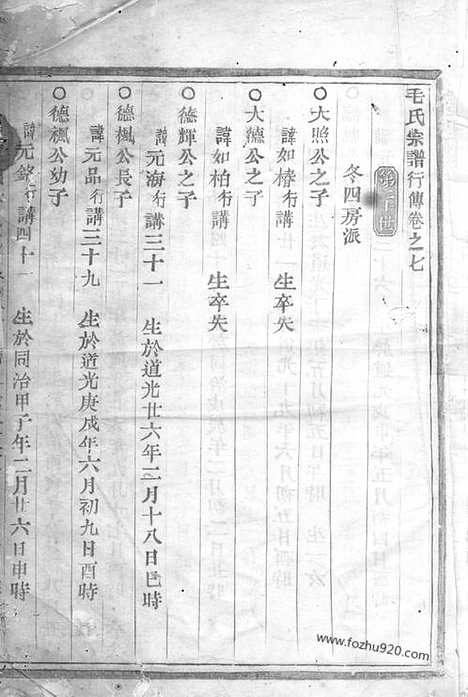 毛氏宗譜行傳卷之七
冬四房派
大照公之子
諱如椿行講 生卒失
大德公之子
諱如柏行講 生卒失
德輝公之子
諱元海行講三十一 生於道光廿六年三月十八日巳時
德楓公長子
諱元品行講三十九 生於道光庚戌年六月初九日酉時
德楓公幼子
諱元行講四十一 生於同治甲子年二月廿六日申時
www.fozhu920.com